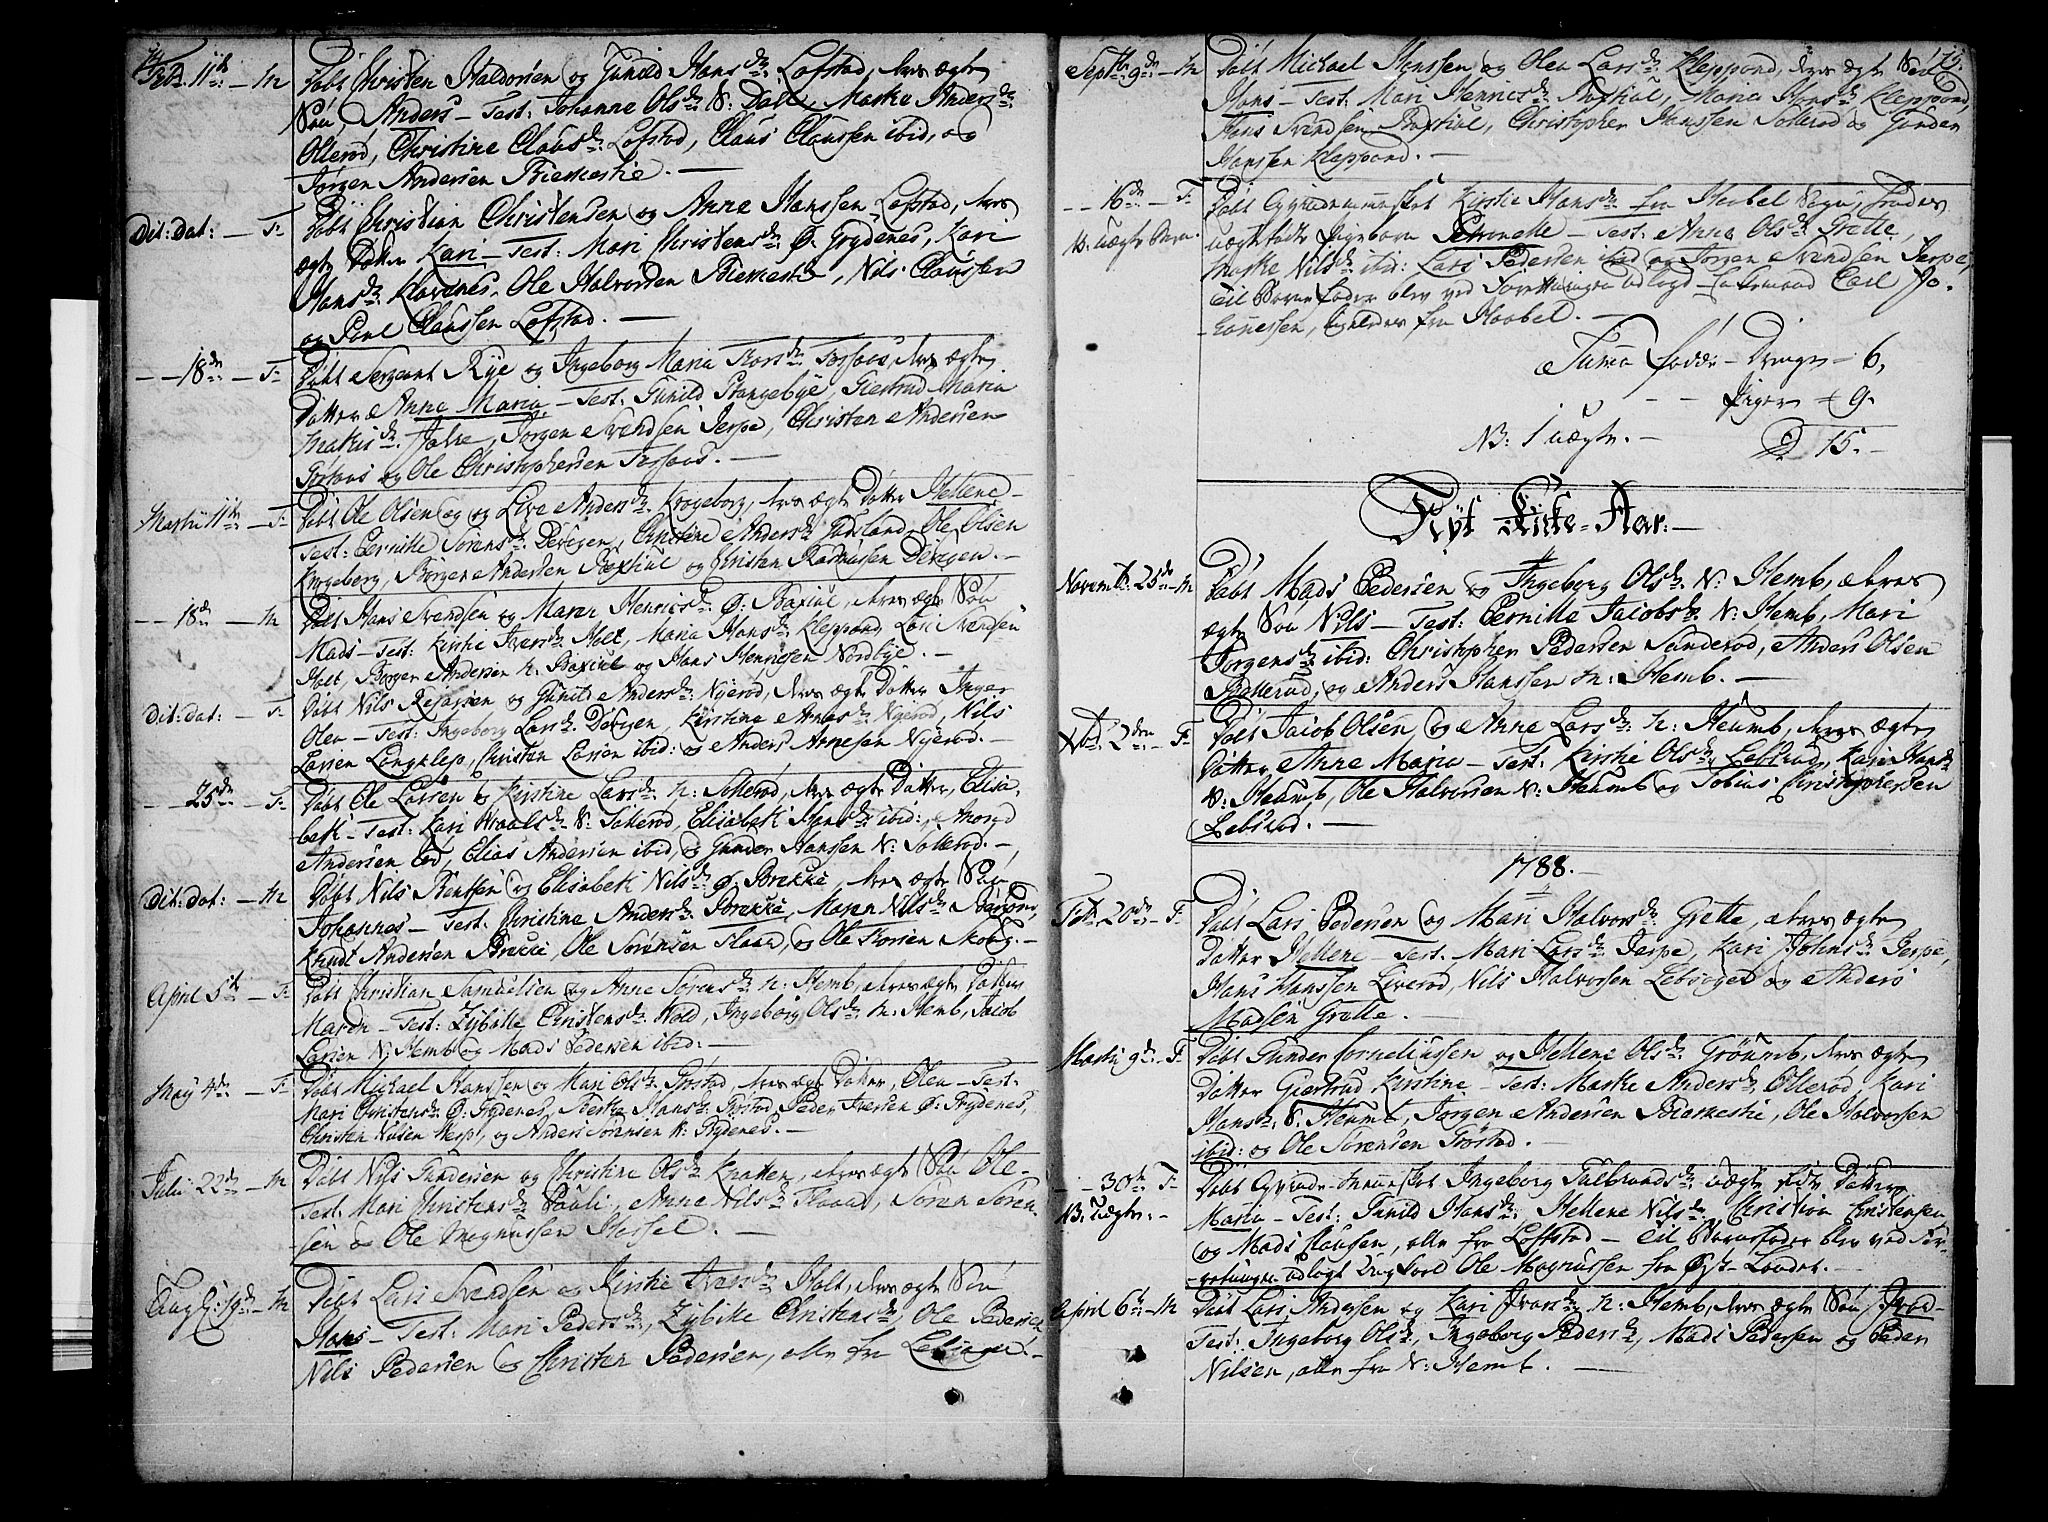 74.
Feb: 11te — M
Døbt Christen Haldorsen og Gunild Hansdr: Lofstad, deres ægte
Søn Anders — Test: Johanne Olsdr N: Dahl, Maske Andersdr
Ollerød, Christine Clausdr: Lofstad, Claus Claussen ibid, og
Jørgen Andersen Birkestie. —
Dit: Dat: — F.
Døbt Christian Christensen og Anne Hanssen Lofstad, deres
ægte Datter Kari — Test: Mari Christensdr: Ø: Frydenes, Kari
Hansdr: Klavenes, Ole Halvorsen
og Poul Claussen Lofstad. —
— — 18de — F
Døbt Sergeant Rye og Ingeborg Maria, deres ægte
Datter Anne Maria — Test: Gunild Stangebye, Giertrud Maria
Jørgen Svendsen Jerpe, Christen Andersen
og Ole Christophersen
Martii 11te — F
Døbt Ole Olsen og Live Andersdr: Krogeborg, deres ægte Datter Hellene —
Test: Pernille Sørensdr: Devegen, Christine Andersdr, Ole Olsen
Krogeborg, Børger Andersen og Christen Rasmussen Devegen. —
— — 18de — M
Døbt Hans Svendsen og Maren Henricsdr: Ø:, deres ægte Søn
Mads — Test: Kirstie Iversdr Holt, Maria Hansdr: Kleppond, Lars Svendsen
Holt, Børger Andersen og Hans Henricsen Nordbye. —
Dit: Dat: — F
Døbt Nils og Gunild Andersdr: Nyerød, deres ægte Datter Inger
Olea — Test: Ingeborg Larsdr. Devegen, Kirstine Arnesdr Nyerød, Nils
Larsen, Christen Larsen ibid: og Anders Arnesen Nyerød. —
— — 25de — F
Døbt Ole Larsen og Kirstine Larsdr: N: Sollerød, deres ægte Datter Elisa-
beth — Test: Kari, Elisabeth Hansdr ibid:,
Andersen, Elias Andersen ibid, og Gunder Hanssen N: Sollerød. —
Dit: Dat: — M
Døbt Nils Bentsen og Elisabeth Nilsdr Ø: Brekke, deres ægte Søn
Johannes — Test: Christine Andersdr: Brekke, Maren Nilsdr
Knudt Andersen Brekke, Ole Sørensen Flaad, og Ole
April 5te — F
Døbt Christian Samuelsen og Anne Sørensdr N: Hemb, deres ægte Datter
Maren — Test: Zybille Christensdr: Wold, Ingeborg Olsdr N: Hemb, Jacob
Larsen N: Hemb og Mads Pedersen ibid: —
May 4de — F
Døbt Michael Hanssen og Mari Olsdr:, deres ægte Datter, Olea — Test:
Mari Christensdr: Ø: Frydenes, Hansdr:, Peder Iversen Ø: Frydenes,
Christen Nilsen, og Anders Sørensen N: Frydenes. —
Julii 22de — M
Døbt Nils Gundersen og Christine Olsdr: Knatten, deres ægte Søn Ole —
Test: Mari Christensdr:, Anne Nilsdr: Flaad, Søren Søren-
sen og Ole Magnussen
Aug: 19de — M
Døbt Lars Svendsen og Kirstie Iversdr: Holt, deres ægte Søn
Hans — Test: Mari Pedersdr:, Zybille Christensdr, Ole Pedersen
Nils Pedersen og Christen Pedersen, alle fra Lebsager. —
75.
Septbr: 9de — M
Døbt Michael Hanssen og Olea Larsdr: Kleppond, deres ægte Søn
Hans — Test: Mari Henricsdr, Maria Hansdr: Kleppond,
Hans Svendsen, Christopher Hanssen Sollerød og Gunder
Hanssen Kleppond. —
— — 16de — F
N: Uægte Barn.
Døbt Qvindemennesket Kirstie Hansdr fra Haabel Sogn, hendes
uægte fødte Pigebarn Pernille — Test: Anne Olsdr: Grette,
Maske Nilsdr ibid: Lars Pedersen ibid og Jørgen Svendsen Jerpe,
Til Barnefader blev ved Forretningen udlagt Carl Jo-
hannessen, fra Haabel. —
Summa fødde — Drenge — 6,
— — Piger — 9.
NB: 1 uægte. — 15. —
Nyt Kirke-Aar. —
Novembr: 25de — M
Døbt Mads Pedersen og Ingeborg Olsdr: N: Hemb, deres
ægte Søn Nils — Test: Pernille Jacobsdr: N: Hemb, Mari
Jørgensdr: ibid: Christopher Pedersen Sanderød, Anders Olsen
og Anders Hanssen N: Hemb. —
Xbr: 2den — F
Døbt Jacob Olsen og Anne Larsdr: N: Heumb, deres ægte
Datter Anne Maria — Test: Kirstie Olsdr Lebsrud, Kari Hansdr
N: Heumb, Ole Halvorsen N: Heumb og Tobias Christophersen
Lebsrød. —
1788. —
Feb: 20de — F
Døbt Lars Pedersen og Mari Halvorsdr: Grette, deres ægte
Datter Hellene — Test: Mari Larsdr: Jerpe, Kari Johnsdr Jerpe,
Hans Hanssen Liverød, Nils Halvorsen Lebsager og Anders
Madsen Grette. —
Martii 9de — F
Døbt Gunder Corneliussen og Hellene Olsdr: Grøumb, deres ægte
Datter Giertrud Kirstine — Test: Maske Andersdr: Ollerød, Kari
Hansdr: N: Heumb, Jørgen Andersen Birkestie, Ole Halvorsen
ibid: og Ole Sørensen
— — 30te — F
NB: Uægte. —
Døbt Qvinde-Mennesket Ingeborg Gulbrandsdr: uægte født Datter
Maria — Test: Gunild Hansdr:, Hellene Nilsdr:, Christian Christensen
og Mads Clausen, alle fra Lofstad — Til Barnefader blev ved For-
retningen udlagt Ung Karl Ole Magnussen fra Øst-Landet. —
April 6te — M
Døbt Lars Andersen og Kari Iversdr: N: Hemb, deres ægte Søn Iver —
Test: Ingeborg Olsdr:, Ingeborg Pedersdr:, Mads Pedersen og Peder
Nilsen, alle fra N: Hemb. —